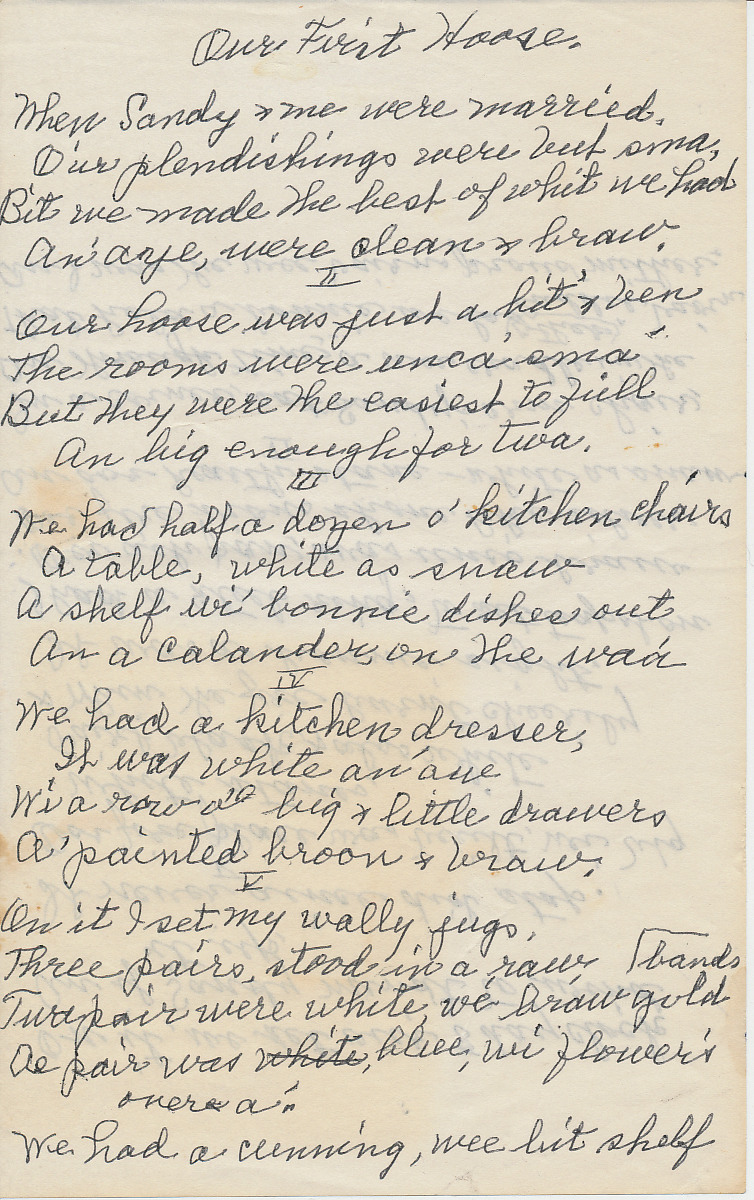 Our First Hoose.
When Sandy & me were married,
Our plendishings were but sma,
Bit we made the best of whit we had
An' aye, were clean & braw.
II
Our hoose was just a bit' & ben
The rooms were unca' sma'
But they were the easiest to full
An big enough for twa.
III
We had half a dozen o' kitchen chairs
A table, white as snaw
A shelf wi' bonnie dishes out
An a calander, on the waa'
IV
We had a kitchen dresser,
It was white an' ane
Wi a row o' big & little drawers
A' painted broon & braw.
V
On it I set my wally jugs,
Three pairs, stood in a raw
bands
Twa pair were white, we' braw gold
Ae pair was white, blue, wi' flowers
overe a'.
We had a cunning, wee bit shelf